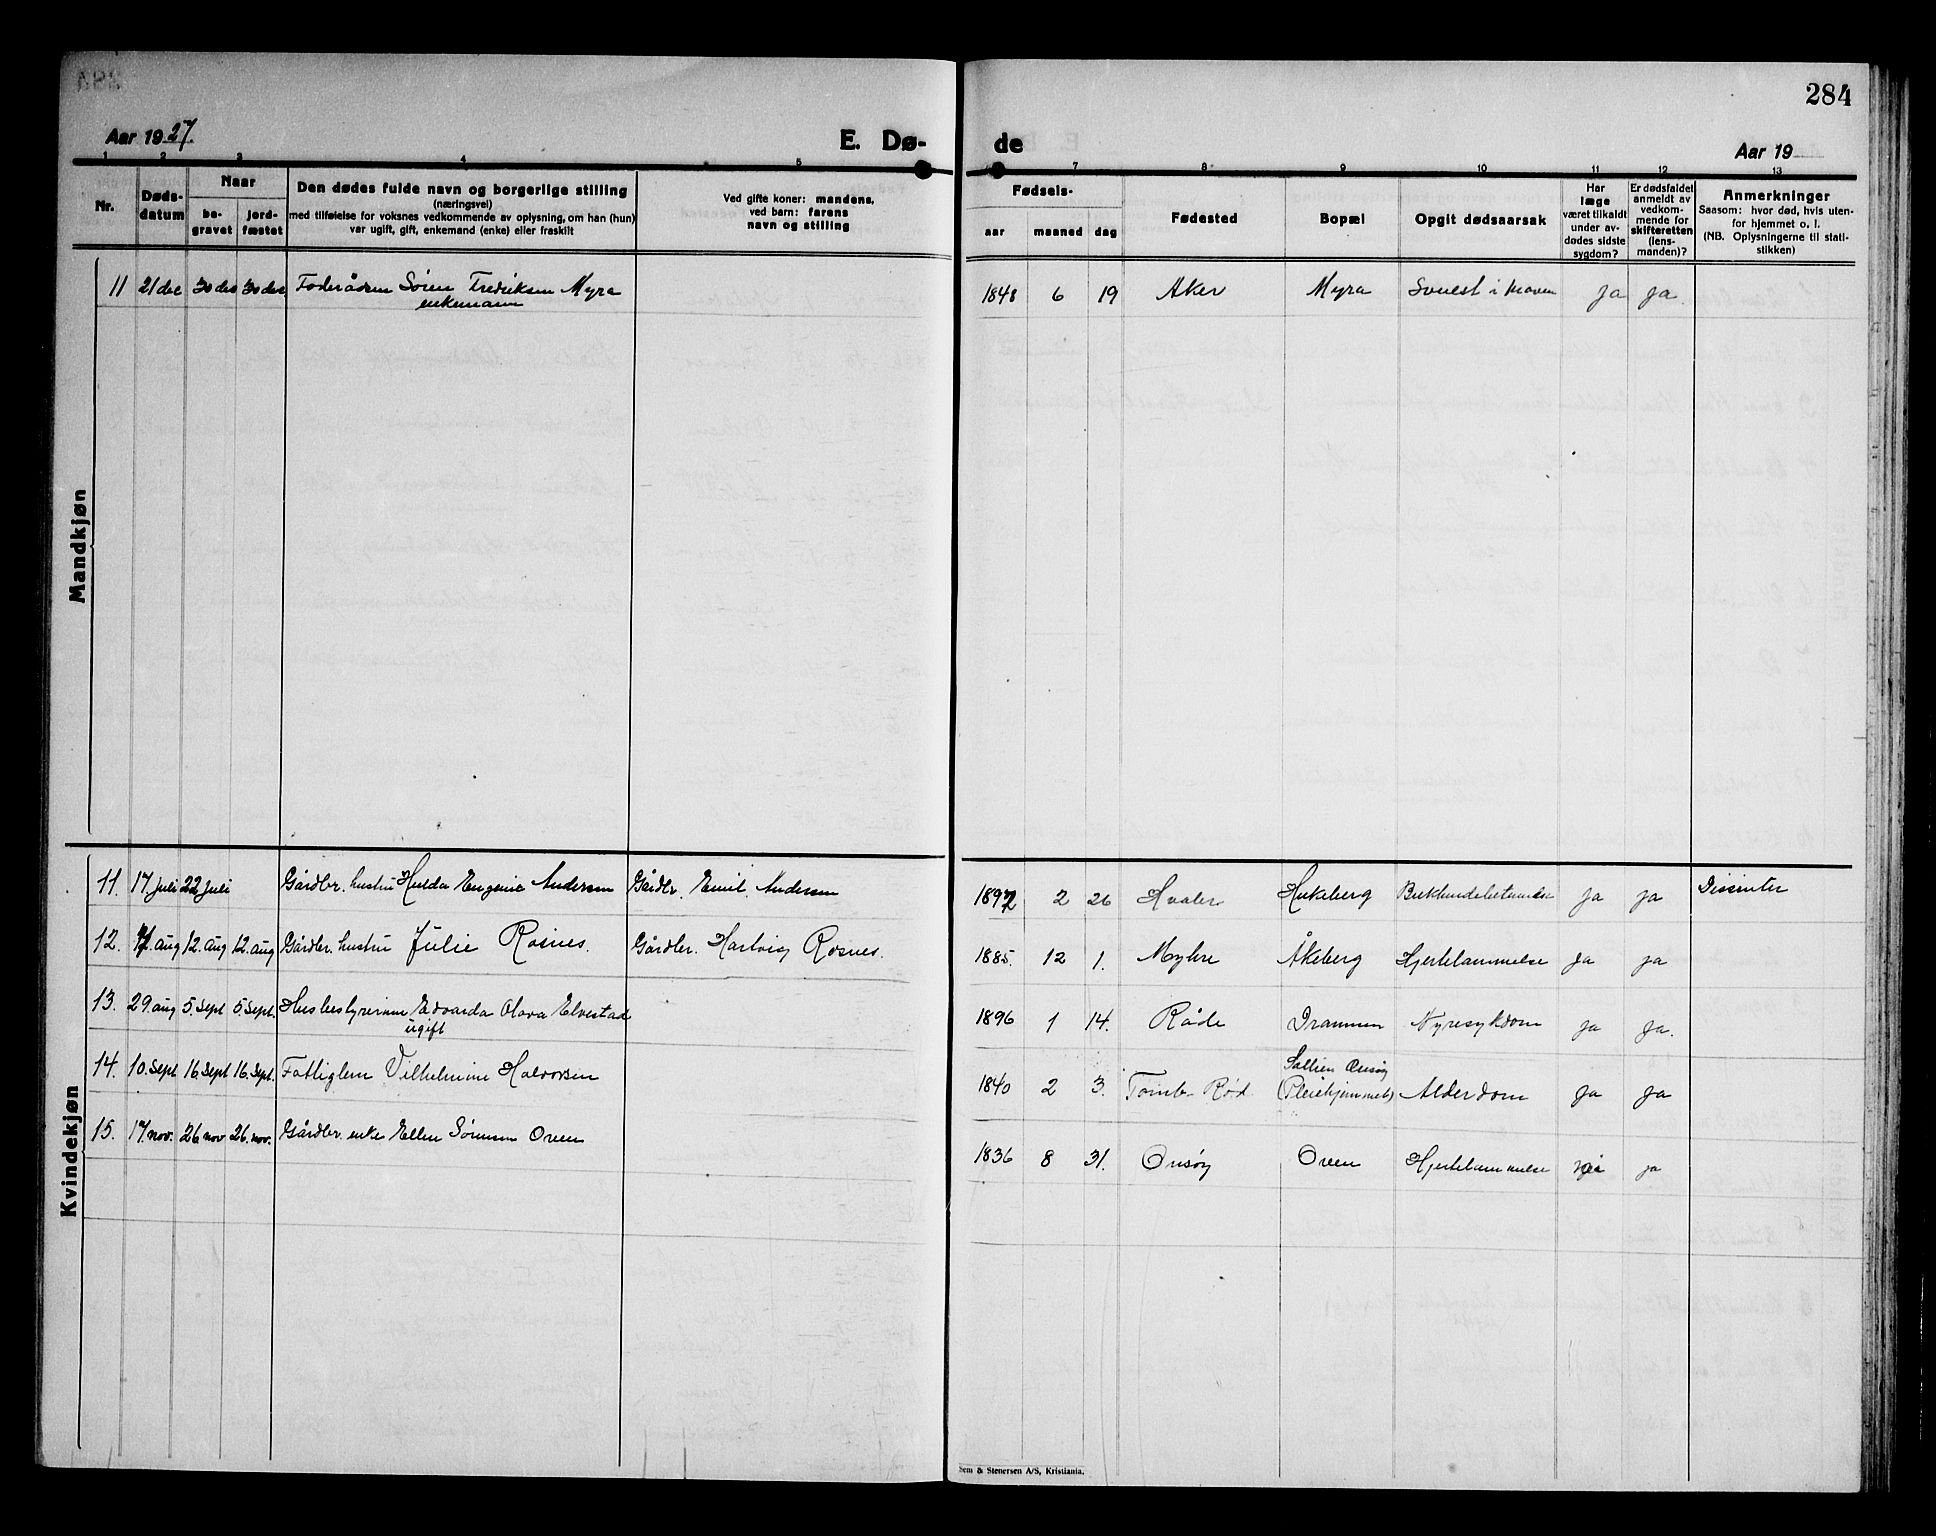 284
Aar 1927.
E. Dø-
de
Aar 19
1 2 3 4 5 7 8 9 10 11 12 13
Nr.
Døds-
datum
Naar
be-
gravet
jord-
fæstet
Den dødes fulde navn og borgerlige stilling
(næringsvei)
med tilføielse for voksnes vedkommende av oplysning, om han (hun)
var ugift, gift, enkemand (enke) eller fraskilt
Ved gifte koner: mandens,
ved barn: farens
navn og stilling
Fødsels-
aar maaned dag
Fødested
Bopæl
Opgit dødsaarsak
Har
læge
været tilkaldt
under av-
dødes sidste
sygdom?
Er dødsfaldet
anmeldt av
vedkom-
mende for
skifteretten
(lens-
manden)?
Anmerkninger
Saasom: hvor død, hvis uten-
for hjemmet o. l.
(NB. Oplysningerne til stati-
stikken)
Mandkjøn
11 21 dec 30 des 30 des Foderådsm Sören Fredriksen Myra
enkemann
1848 6 19 Aker Myra Svulst i maven ja ja.
Kvindekjøn
11. 17 juli 22 juli Gårdbr. hustru Hulda Eugenie Andersen Gårdbr. Emil Andersen
1892 2 26 Hvaler Hukeberg Bukhindebetennelse ja ja Dissenter
12. 7. aug 12. aug 12. aug Gårdbr. hustru Julie Rosnes. Gårdbr. Hartvig Rosnes.
1885. 12 1. Myhre Åkeberg Hjertelammelse ja ja
13. 29. aug 5. sept 5. sept. Husbestyrerinne Edvarda Olava Elvestad
ugift
1896 1 14. Råde Drammen Nyresykdom ja ja.
14. 10. sept 16 sept 16. sept. Fattiglem Vilhelmine Halvorsen
Onsøy
1840 2 3. Tomb Rød (Pleiehjemmet) Alderdom ja ja
15. 17. nov. 26 nov 26. nov. Gårdbr. enke Ellen Sörensen Oven
1836 8 31. Onsøy Oven Hjertelammelse nei ja
Sem & Stenersen A/S, Kristiania.